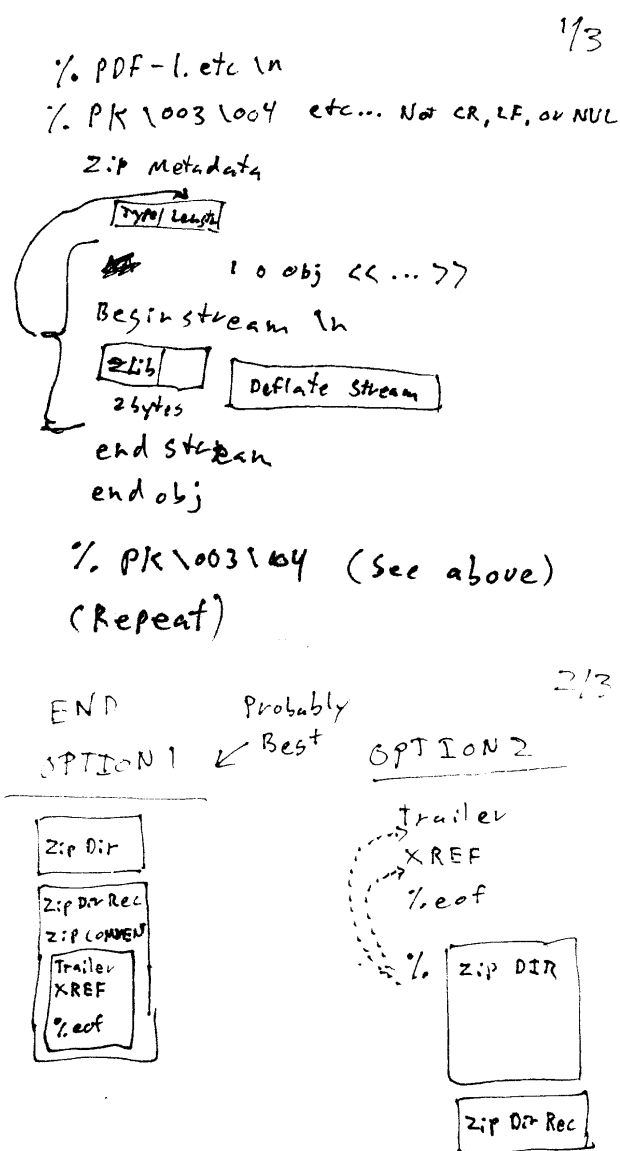 1/3
% PDF-1.etc \n
% PK \003 \004 etc... Not CR, LF, or NUL
Zip Metadata
Type/Length
1 0 obj << ... >>
Begin stream \n
ZLib
Deflate Stream
2 bytes
end stream
end obj
% PK \003 \004 (See above)
(Repeat)
2/3
END
Probably
Best
OPTION 1
OPTION 2
Zip Dir
Zip Dir Rec
Zip COMMEN
Trailer
XREF
%eof
Trailer
XREF
%eof
% Zip DIR
Zip Dir Rec